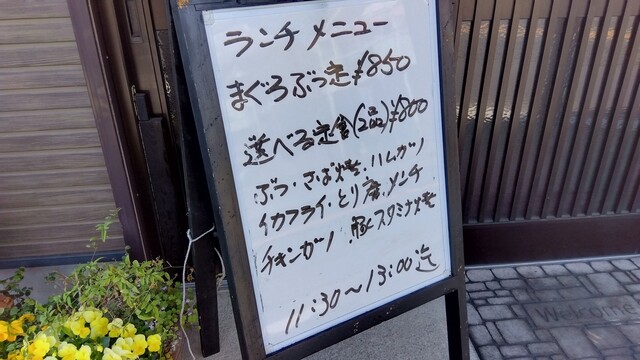 ランチメニュー
まぐろぶつ定¥850
選べる定食(2品)¥800
ぶつ・さば焼・ハムカツ
イカフライ・とり唐・メンチ
チキンカツ・豚スタミナ焼
11:30～13:00迄
Welcome